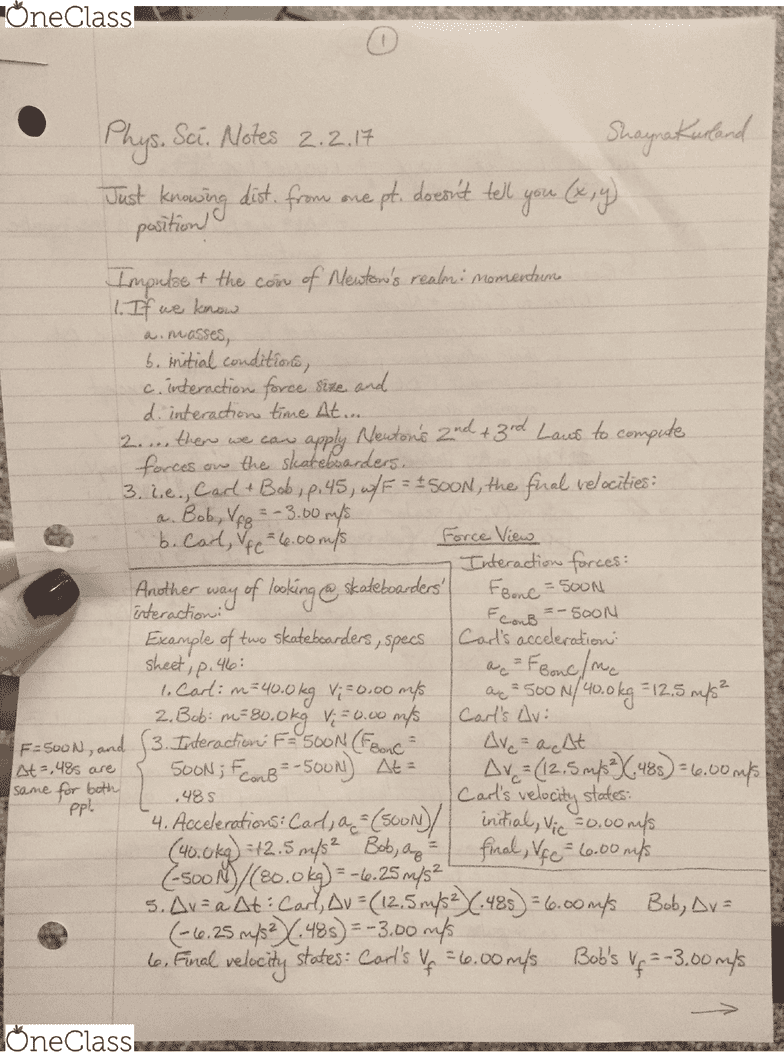 OneClass
1
Phys. Sci. Notes 2.2.17
Shayna Kurland
Just knowing dist. from one pt. doesn't tell you (x,y)
position!
Impulse + the coin of Newton's realm: momentum
1. If we know
a. masses,
b. initial conditions,
c. interaction force size and
d. interaction time Δt...
2. ... then we can apply Newton's 2nd + 3rd Laws to compute
forces on the skateboarders.
3. i.e., Carl + Bob, p.45, w/F = ±500N, the final velocities:
a. Bob, VfB = -3.00 m/s
b. Carl, VfC = 6.00 m/s
Another way of looking @ skateboarders'
interaction:
Example of two skateboarders, specs
sheet, p.46:
1. Carl: m=40.0kg Vi=0.00 m/s
2. Bob: m=80.0kg Vi=0.00 m/s
F=500N, and
Δt=.48s are
same for both
ppl.
3. Interaction: F=500N (FBonC =
500N; FConB = -500N) Δt =
.48s
4. Accelerations: Carl, ac = (500N)/
(40.0kg) = +12.5 m/s² Bob, aB =
(-500N)/(80.0kg) = -6.25 m/s²
5. Δv = a Δt: Carl, Δv = (12.5 m/s²)(.48s) = 6.00 m/s Bob, Δv =
(-6.25 m/s²)(.48s) = -3.00 m/s
6. Final velocity states: Carl's Vf = 6.00 m/s Bob's Vf = -3.00 m/s
Force View
Interaction forces:
FBonC = 500N
FConB = -500N
Carl's acceleration:
ac = FBonC/mc
ac = 500 N/40.0kg = 12.5 m/s²
Carl's Δv:
Δvc = acΔt
Δvc = (12.5 m/s²)(.48s) = 6.00 m/s
Carl's velocity states:
initial, Vic = 0.00 m/s
final, Vfc = 6.00 m/s
→
OneClass